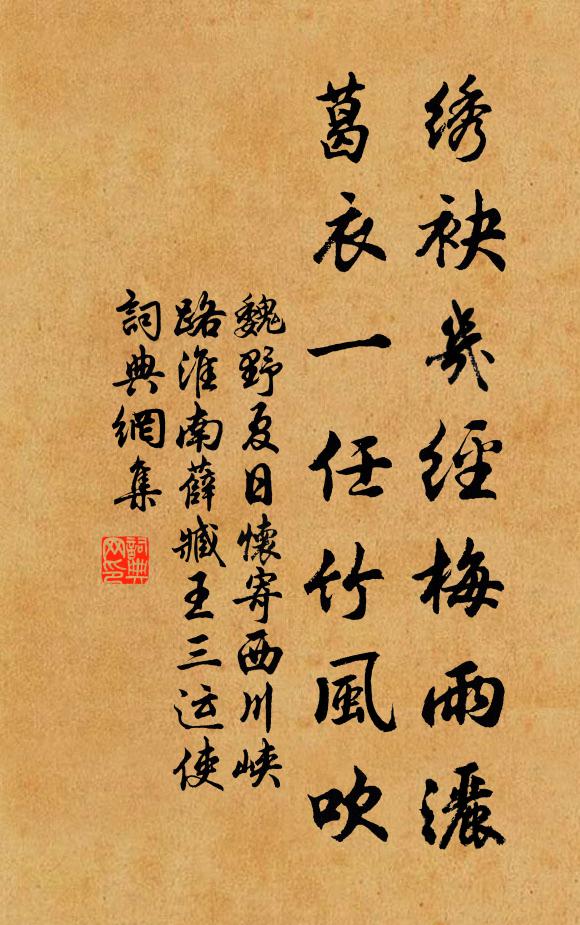 绣袂幾經梅雨灑
葛衣一任竹風吹
魏野夏日懷寄西川峽
路淮南薛臧王三运使
詞典網集
詞典
网印